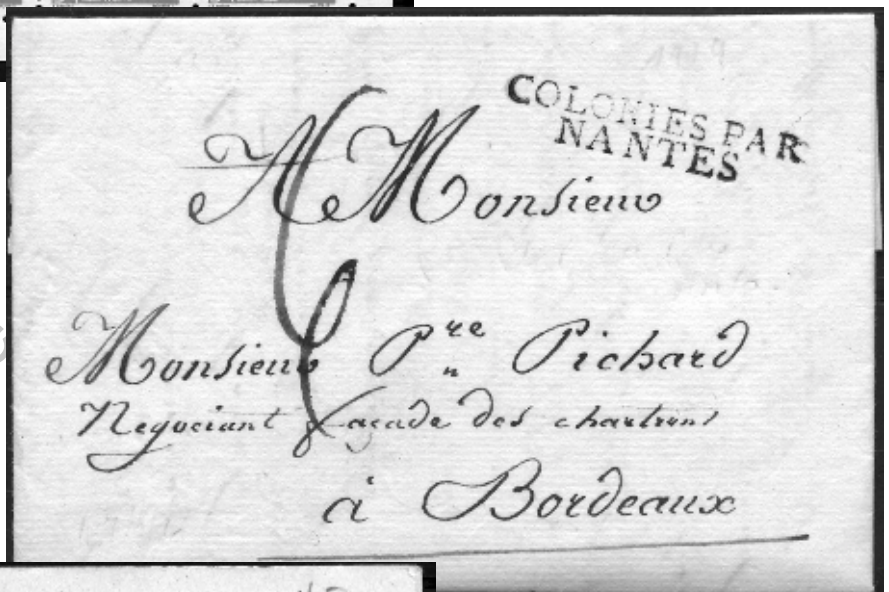 COLONIES PAR
NANTES
A Monsieur
Monsieur Pre Pichard
Negociant façade des chartrons
à Bordeaux